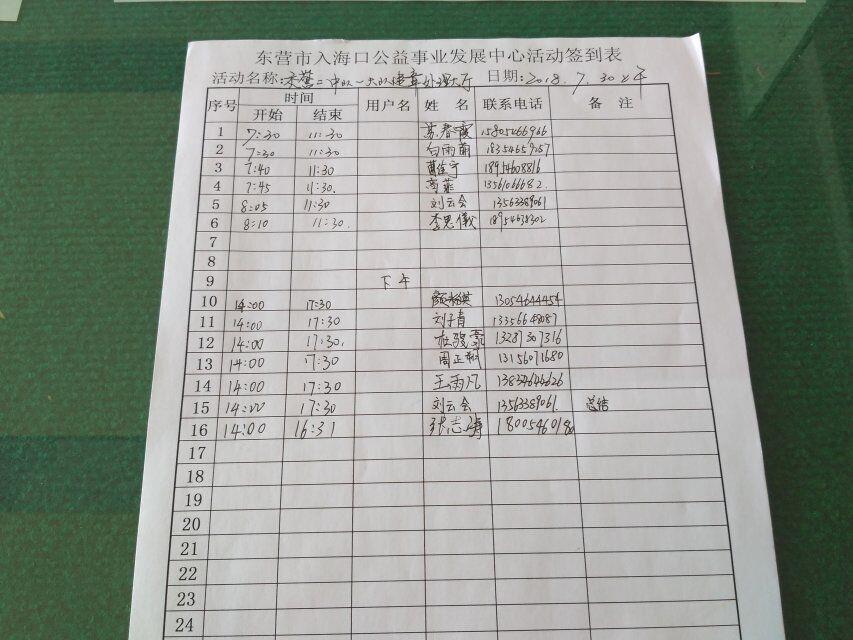 东营市入海口公益事业发展中心活动签到表
活动名称: 日期: 2018.7.30上午
序号 时间 用户名 姓名 联系电话 备注
开始 结束
1 7:30 11:30 苏春霞 15805466966
2 7:30 11:30 白雨萌 18354659757
3 7:40 11:30 18914608816
4 7:45 11:30. 高菲 13561066682.
5 8:05 11:30 刘云会 13563389061
6 8:10 11:30. 李思仪 18954638302
7
8
9 下午
10 14:00 17:30 13054644454
11 14:00 17:30 刘子青 13356648087
12 14:00 17:30. 13287307316
13 14:00 17:30 13156071680
14 14:00 17:30 王雨凡 13834644626
15 14:00 17:30 刘云会 13563389061. 总结
16 14:00 16:31 张志涛 18005460180
17
18
19
20
21
22
23
24